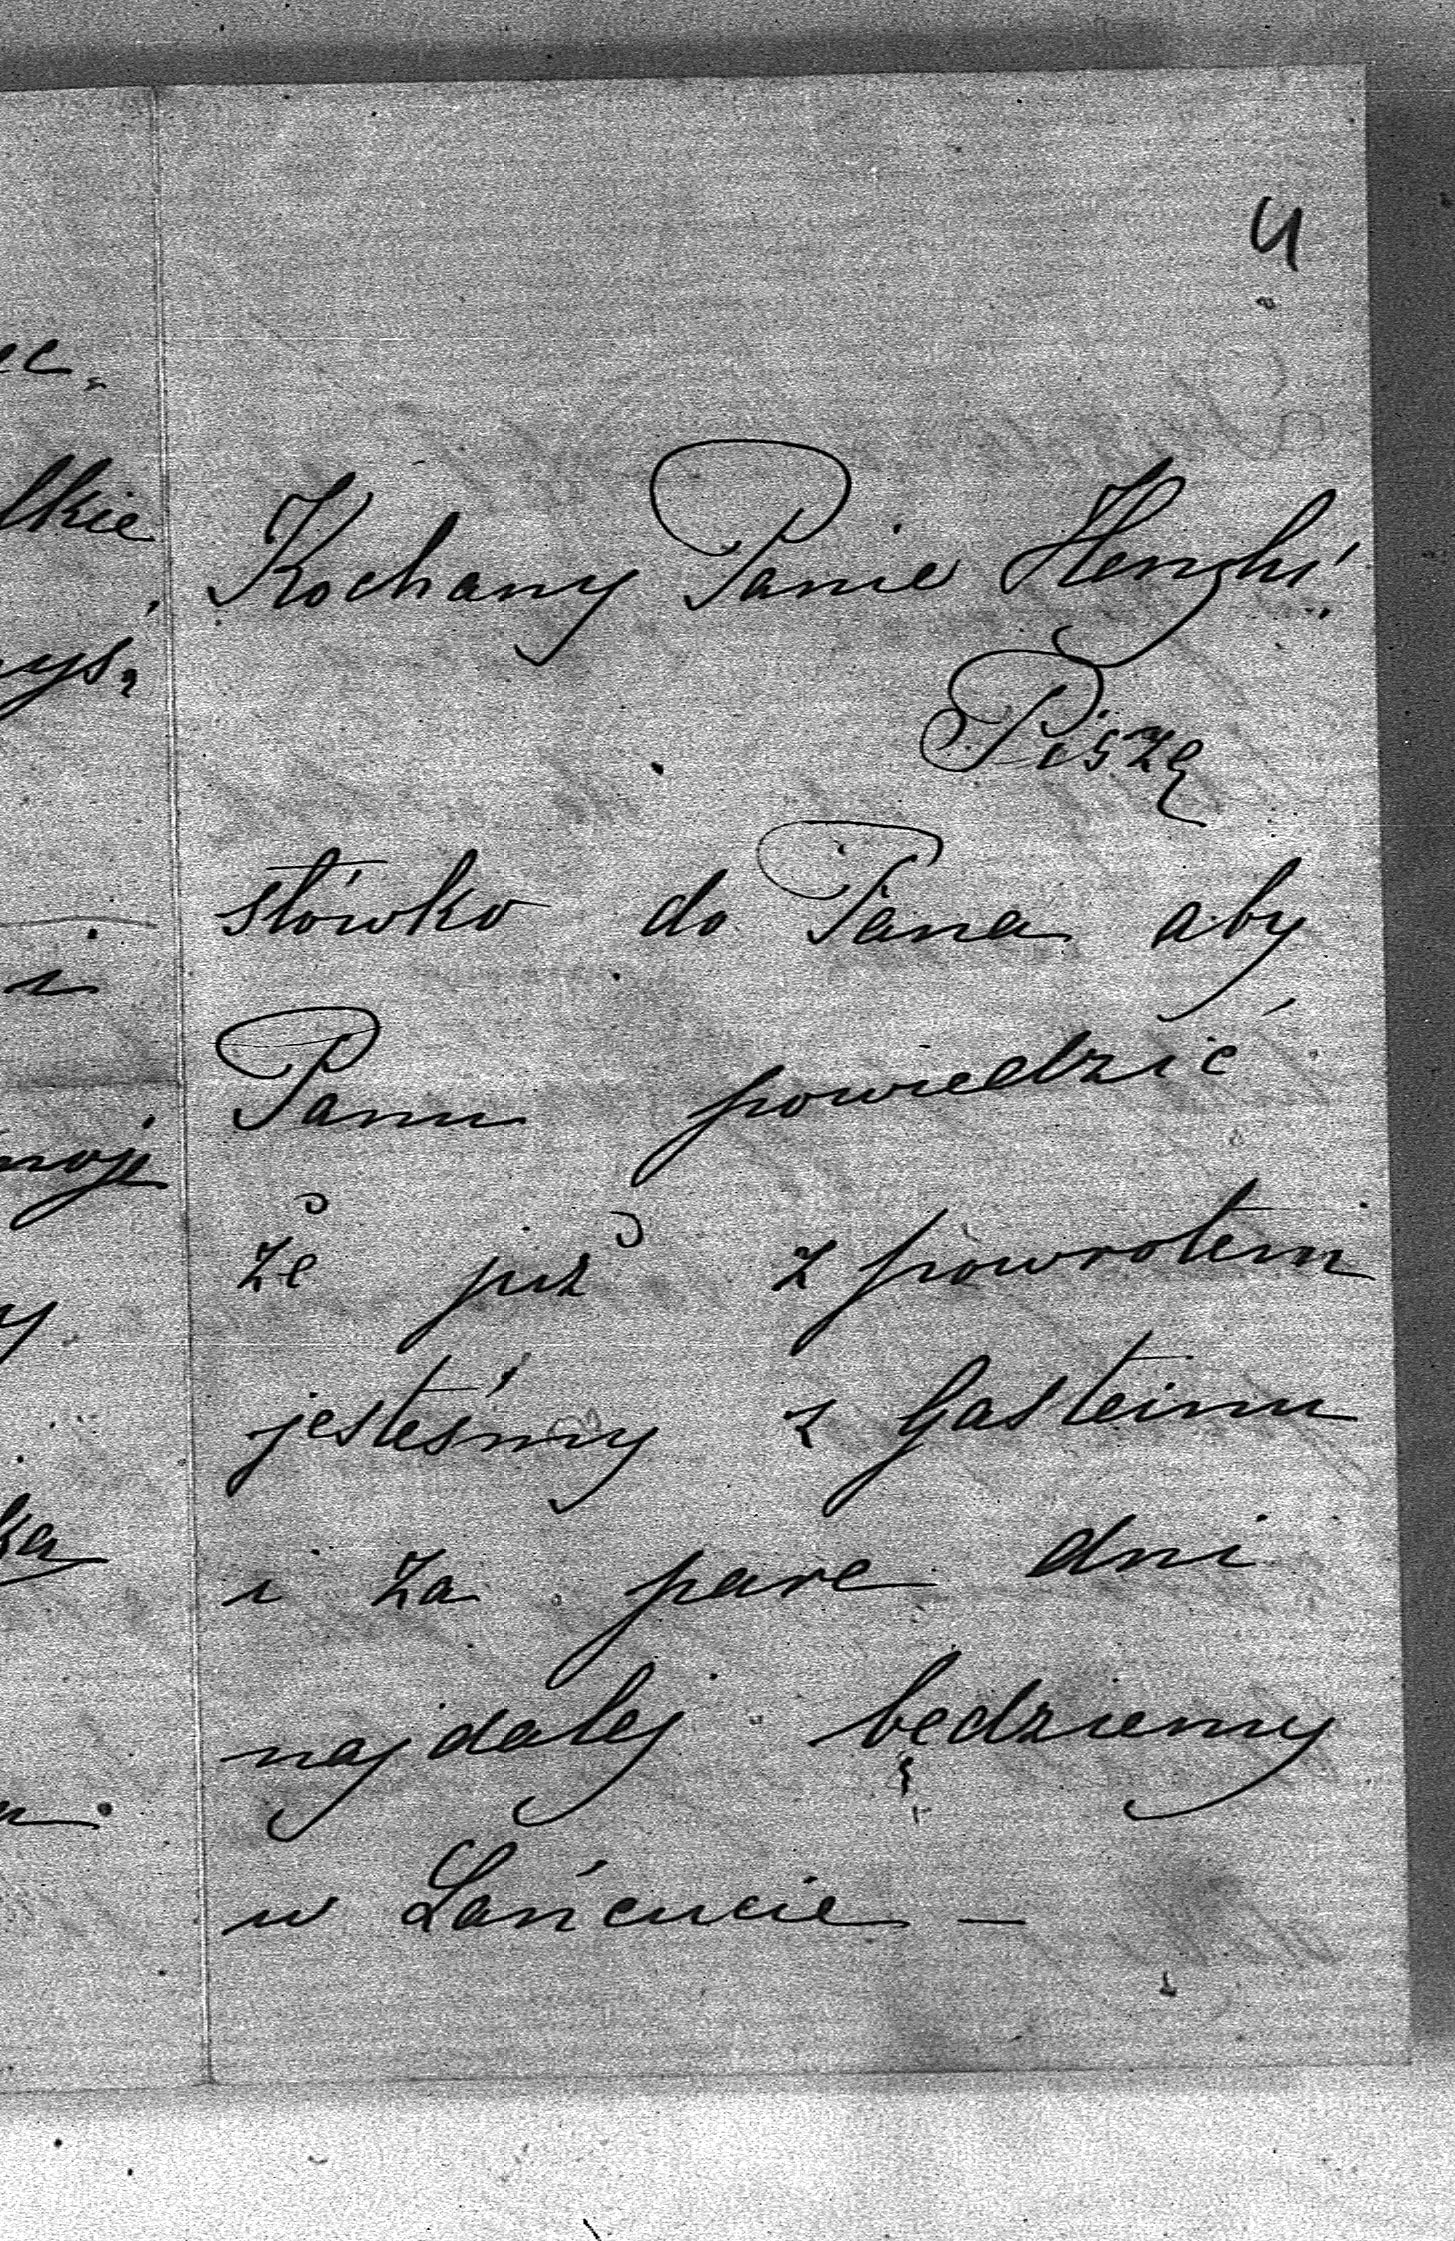 4
Kochany Panie
Piszę
słówko do Pana aby
Panu powiedzić
że już z powrotem
jesteśmy z Gasteinu
i za pare dni
najdalej będziemy
w Łańcucie —
lkie
i
moje
y
ka